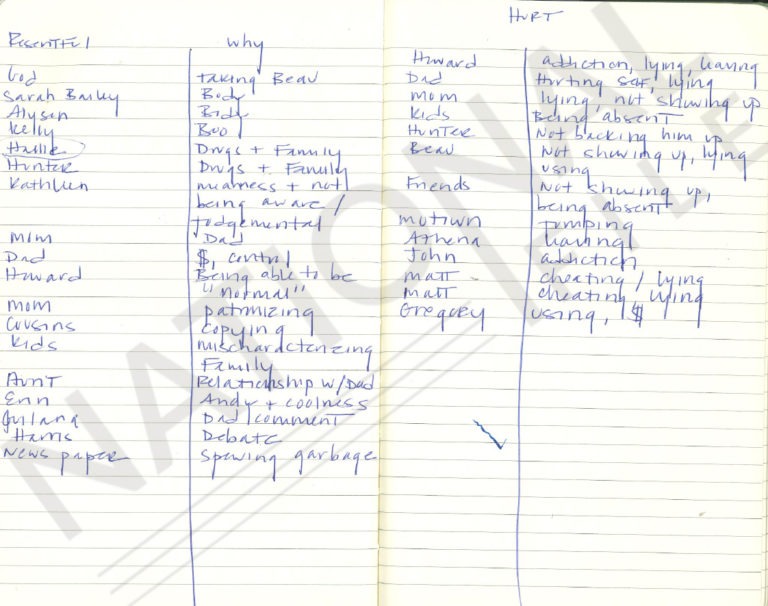 Resentful why
God taking Beau
Sarah Bailey Body
Alyson Body
Kelly Boo
Hallie Drugs + Family
Hunter Drugs + Family
Kathleen meanness + not
being aware /
judgemental
Mom Dad
Dad $, control
Howard Being able to be
"normal"
mom patronizing
Cousins copying
Kids mischaracterizing
Family
Aunt Relationship w/Dad
Erin Andy + coolness
Juliana Dad/comment
Harris Debate
News paper Spewing garbage
HURT
Howard addiction, lying, leaving
Dad Hurting self, lying
mom lying, not showing up
Kids Being absent
Hunter Not backing him up
Beau Not showing up, lying
using
Friends Not showing up,
being absent
jumping
Athena leaving
John addiction
matt cheating / lying
matt cheating, lying
Gregory using, $
NATIONAL
FILE